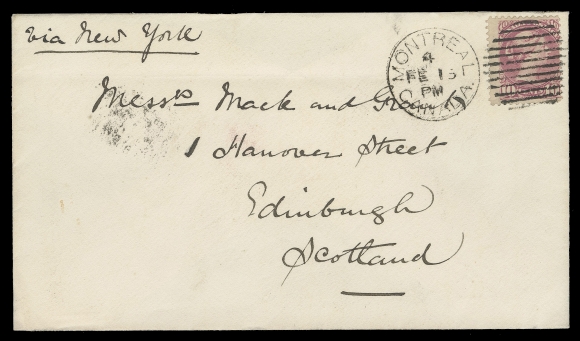 via New York
MONTREAL
4
FE 13
PM
CANADA
Messrs Mack and
1 Hanover Street
Edinburgh
Scotland